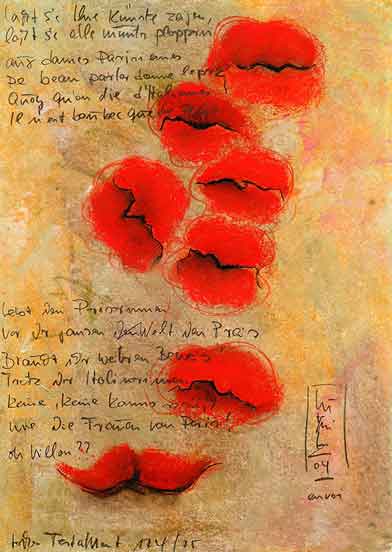 laßt sie Ihre Künste zeigen,
laßt sie alle munter plappern
aux dames Parisiennes
De beau parler donne le prix
Quoy qu'on die d'Italiennes
Il n'est bon bec que de
Lasst den Pariserinnen
vor der ganzen Welt den Preis
Braucht Ihr weiteren Beweis?
Trotz der Italienerinnen
keine, keine kann's
wie die Frauen von Paris!
oh Villon??
04
envoi
Testament